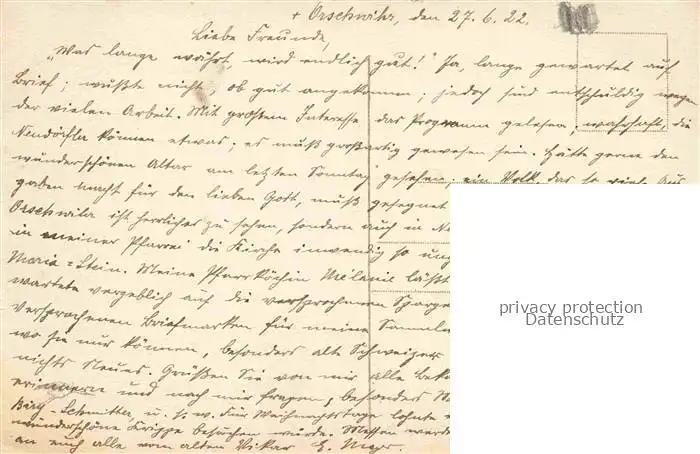 + Orschwihr, den 27.6.22.
Liebe Freunde,
"Was lange währt, wird endlich gut!" Ja, lange gewartet auf
Brief; wußte nicht, ob gut angekommen; jedoch sind entschuldig wegen
der vielen Arbeit. Mit großem Interesse das Programm gelesen; wahrhaft, die
können etwas; es muß großartig gewesen sein. Hätte gerne den
wunderschönen Altar am letzten Sonntag gesehen; ein Volk, das so viele Aus
gaben macht für den lieben Gott, muß gesegnet
Orschwihr ist herrlicher zu sehen, sondern auch in
in meiner Pfarrei die Kirche inwendig so
Maria-Stein. Meine Pfarrköchin Melanie läßt
wartete vergeblich auf die versprochenen
versprochenen Briefmarken für meine
wo sie nur können, besonders alte Schweizer
nichts Neues. Grüßen Sie von mir alle
erinnern und nach mir fragen, besonders
-Schmitter, u. s. w. Für Weihnachtstage lohnte
wunderschöne Krippe besuchen würde. Messen
an euch alle vom alten Vikar E. Meyer.
privacy protection
Datenschutz